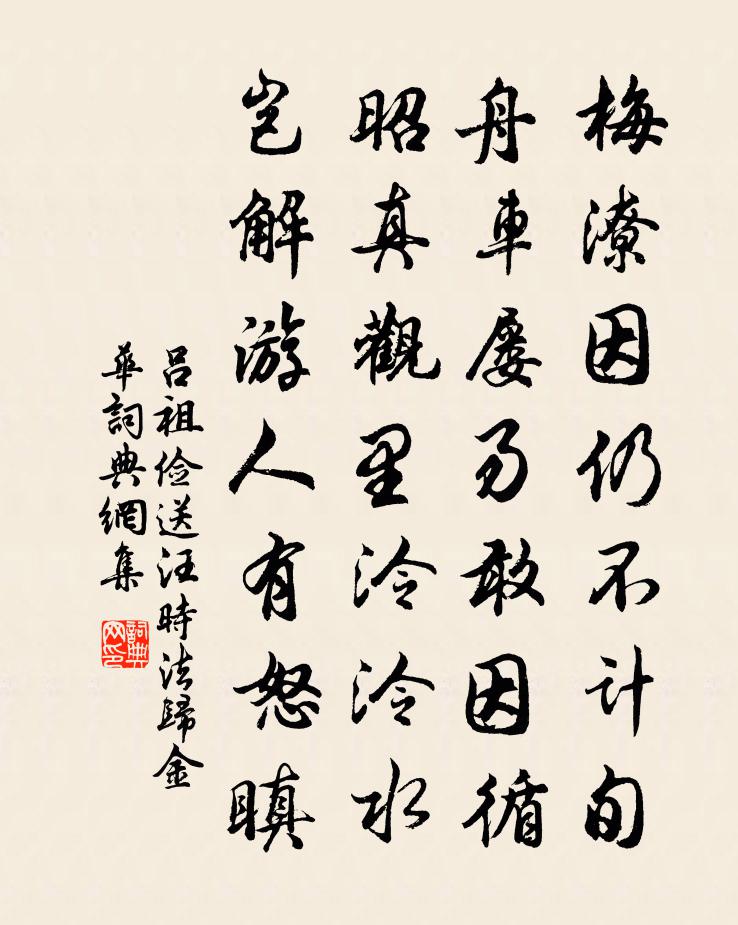 梅潦因仍不計旬
舟車屡易敢因循
昭真觀里泠泠水
岂解游人有怒瞋
吕祖俭送汪時法歸金
華詞典網集
詞典
网印